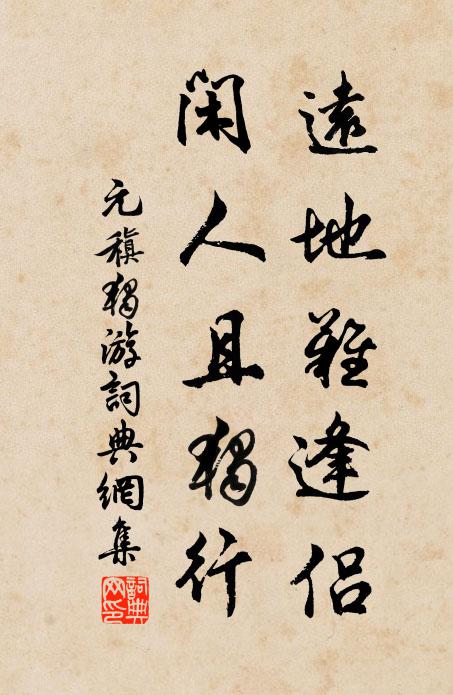 遠地難逢侶
閑人且獨行
元稹獨游詞典網集
詞典網印